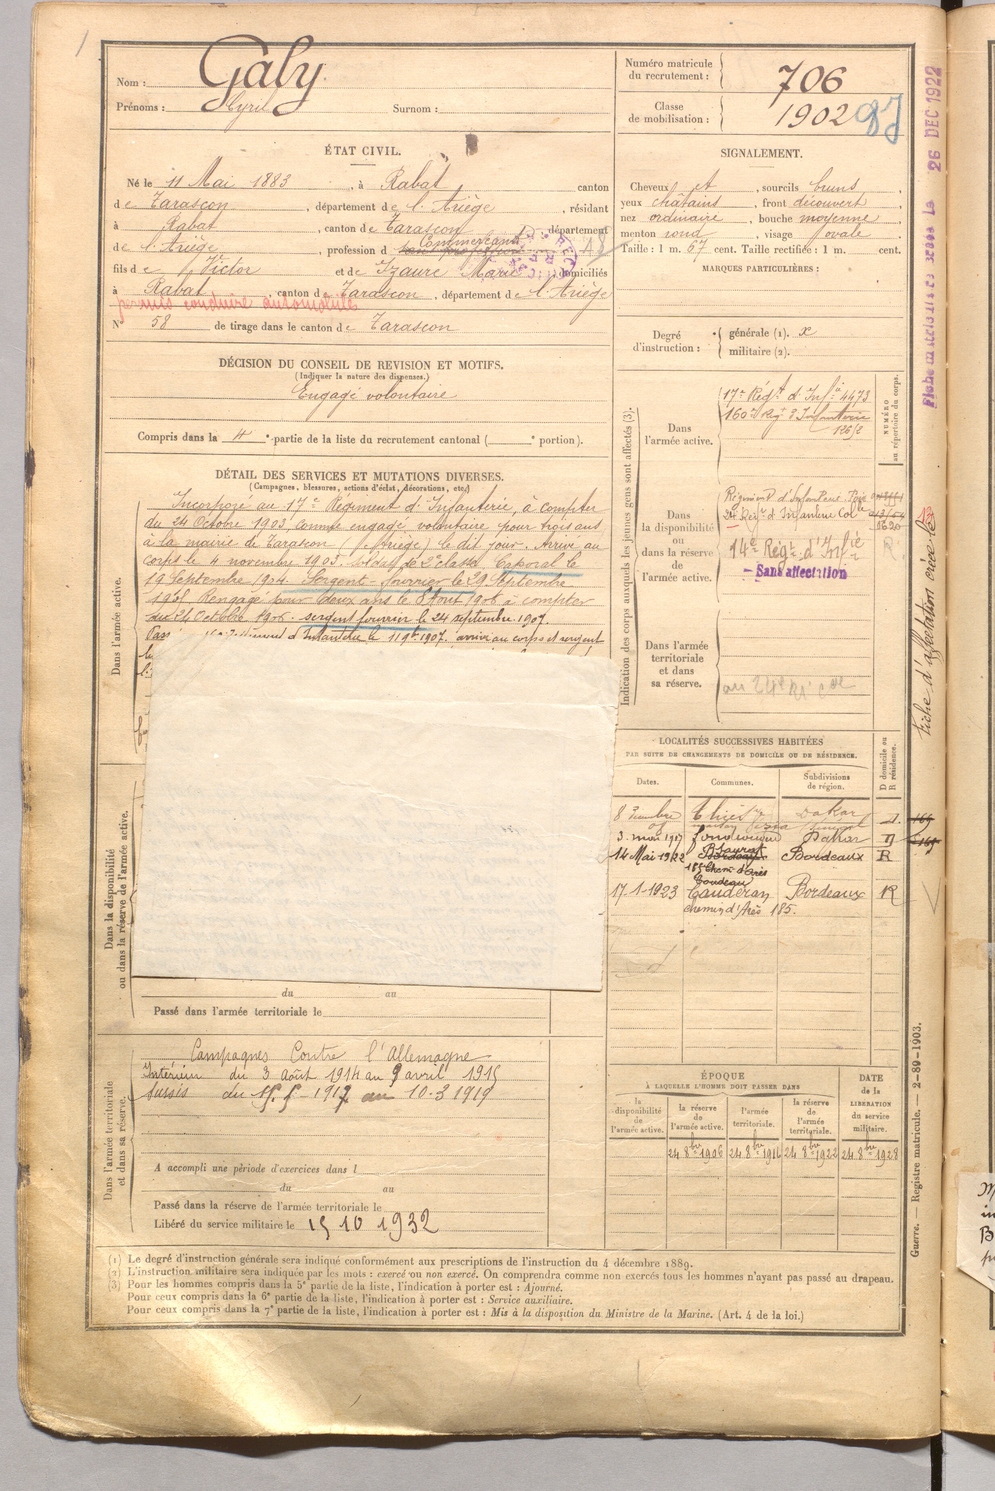 Nom : Galy
Prénoms : Cyril Surnom :
Numéro matricule du recrutement : 706
Classe de mobilisation : 1902
ÉTAT CIVIL.
Né le 11 Mai 1883, à Rabat canton
de Tarascon, département de l'Ariège, résidant
à Rabat, canton de Tarascon, département
de l'Ariège, profession de Commerçant
fils de Victor et de Izaure Marie domiciliés
à Rabat, canton de Tarascon, département de l'Ariège
permis conduire automobile
N° 58 de tirage dans le canton de Tarascon
SIGNALEMENT.
Cheveux et, sourcils bruns,
yeux châtains, front découvert,
nez ordinaire, bouche moyenne,
menton rond, visage ovale.
Taille : 1 m. 67 cent. Taille rectifiée : 1 m. cent.
MARQUES PARTICULIÈRES :
Degré d'instruction : générale (1). x
militaire (2).
DÉCISION DU CONSEIL DE REVISION ET MOTIFS.
(Indiquer la nature des dispenses.)
Engagé volontaire
Compris dans la 4e partie de la liste du recrutement cantonal ( portion).
DÉTAIL DES SERVICES ET MUTATIONS DIVERSES.
(Campagnes, blessures, actions d'éclat, décorations, etc.)
Dans l'armée active.
Incorporé au 17e Régiment d'Infanterie, à compter
du 24 Octobre 1903 comme engagé volontaire pour trois ans
à la mairie de Tarascon (Ariège) le dit jour. Arrivé au
corps le 4 novembre 1903. Soldat de 2e classe. Caporal le
19 Septembre 1904. Sergent-fourrier le 29 Septembre
1905. Rengagé pour deux ans le 8 Aout 1906 à compter
du 24 Octobre 1906. sergent fourrier le 24 septembre 1907.
arrivé au corps et sergent
Indication des corps auxquels les jeunes gens sont affectés (3).
NUMÉRO au répertoire du corps.
Dans l'armée active.
17e Régt d'Infie 4473
160e Régt d'Infanterie
126/2
Dans la disponibilité ou dans la réserve de l'armée active.
24 Régt d'Infanterie Colle
14e Régt. d'Infie
Sans affectation
Dans l'armée territoriale et dans sa réserve.
au 24e RI Cal
Fiche d'affectation créée le
26 DEC 1922
LOCALITÉS SUCCESSIVES HABITÉES
PAR SUITE DE CHANGEMENTS DE DOMICILE OU DE RÉSIDENCE.
Dates. Communes. Subdivisions de région. D domicile ou R résidence.
Thiès Dakar
3. mars 1917 Dakar D
14 Mai 1922 Bordeaux R
17-1-1923 Caudéran Bordeaux R
chemin d'Arès 185.
Dans la disponibilité ou dans la réserve de l'armée active.
du au
Passé dans l'armée territoriale le
Dans l'armée territoriale et dans sa réserve.
Campagnes Contre l'Allemagne
Intérieur du 3 Août 1914 au 9 avril 1915
Sursis au 10-3 1919
A accompli une période d'exercices dans l
du au
Passé dans la réserve de l'armée territoriale le
Libéré du service militaire le 15 10 1932
ÉPOQUE
À LAQUELLE L'HOMME DOIT PASSER DANS
la disponibilité de l'armée active. la réserve de l'armée active. l'armée territoriale. la réserve de l'armée territoriale. DATE de la LIBÉRATION du service militaire.
24 8bre 1906 24 8bre 1916 24 8bre 1922 24 8bre 1928
(1) Le degré d'instruction générale sera indiqué conformément aux prescriptions de l'instruction du 4 décembre 1889.
(2) L'instruction militaire sera indiquée par les mots : exercé ou non exercé. On comprendra comme non exercés tous les hommes n'ayant pas passé au drapeau.
(3) Pour les hommes compris dans la 5e partie de la liste, l'indication à porter est : Ajourné.
Pour ceux compris dans la 6e partie de la liste, l'indication à porter est : Service auxiliaire.
Pour ceux compris dans la 7e partie de la liste, l'indication à porter est : Mis à la disposition du Ministre de la Marine. (Art. 4 de la loi.)
Guerre. — Registre matricule. — 2-89-1903.